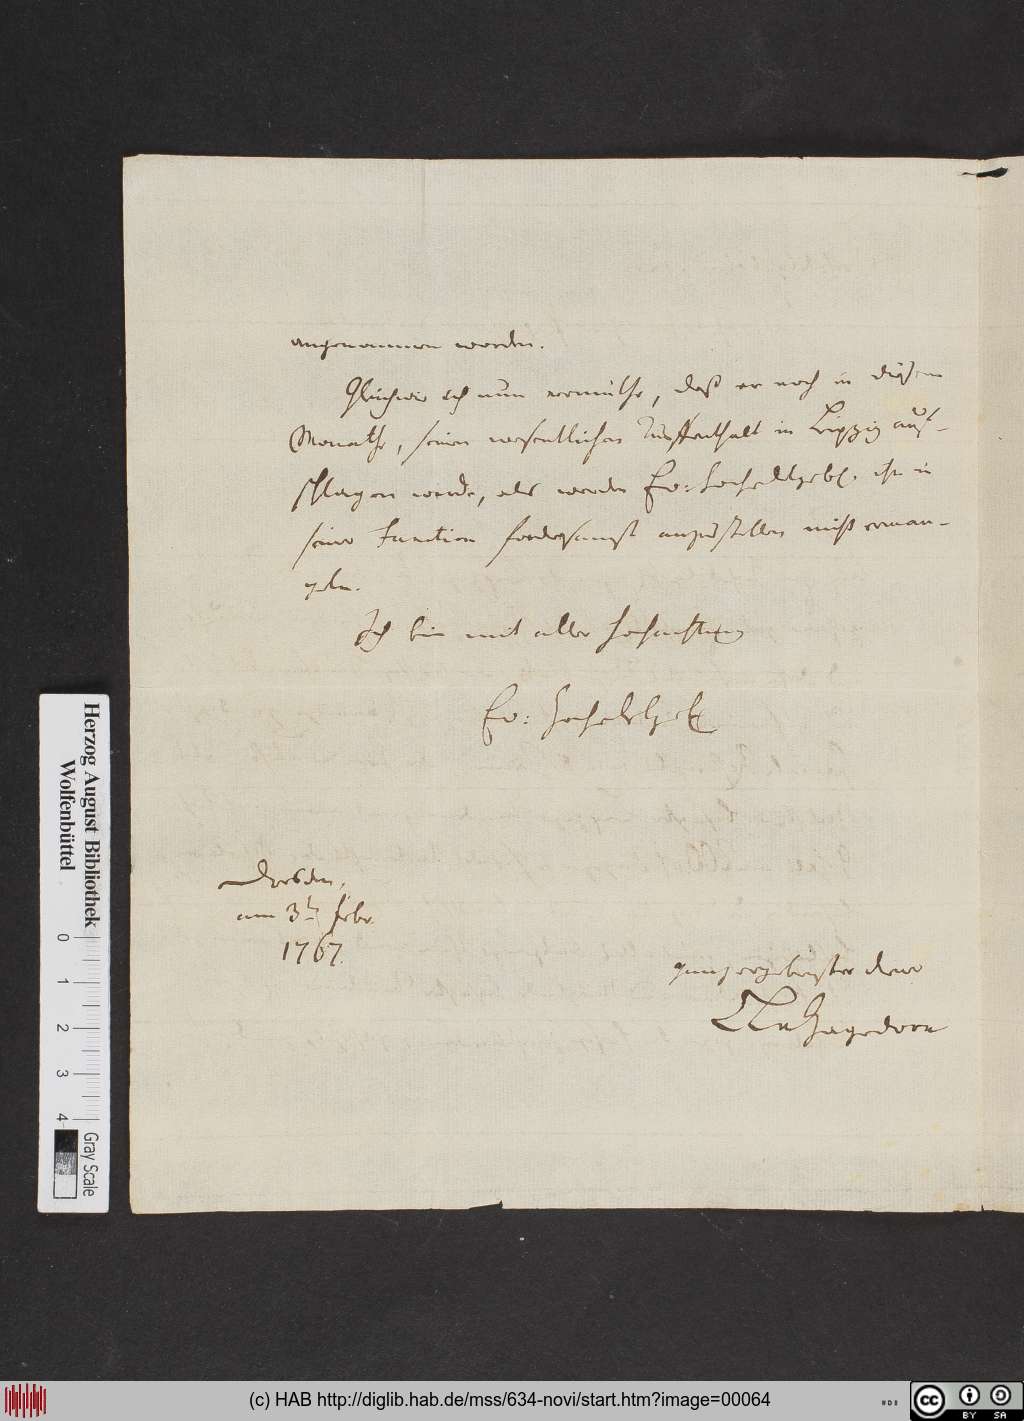 angenommen worden.
Gleichwie ich nun vermuthe, daß er noch in diesem
Monathe, seinen wesentlichen Auffenthalt in Leipzig auf-
schlagen werde, als werden Ew: Hochedelgeb. ihn in
seine Function fordersamst anzustellen nicht erman-
geln.
Ich bin mit aller Hochachtung
Ew: Hochedelgeb.
Dresden,
am 3ten Febr.
1767.
ganz ergebenster Diener
Hagedorn
Herzog August Bibliothek
Wolfenbüttel
0 1 2 3 4
Gray Scale
(c) HAB http://diglib.hab.de/mss/634-novi/start.htm?image=00064
cc BY SA